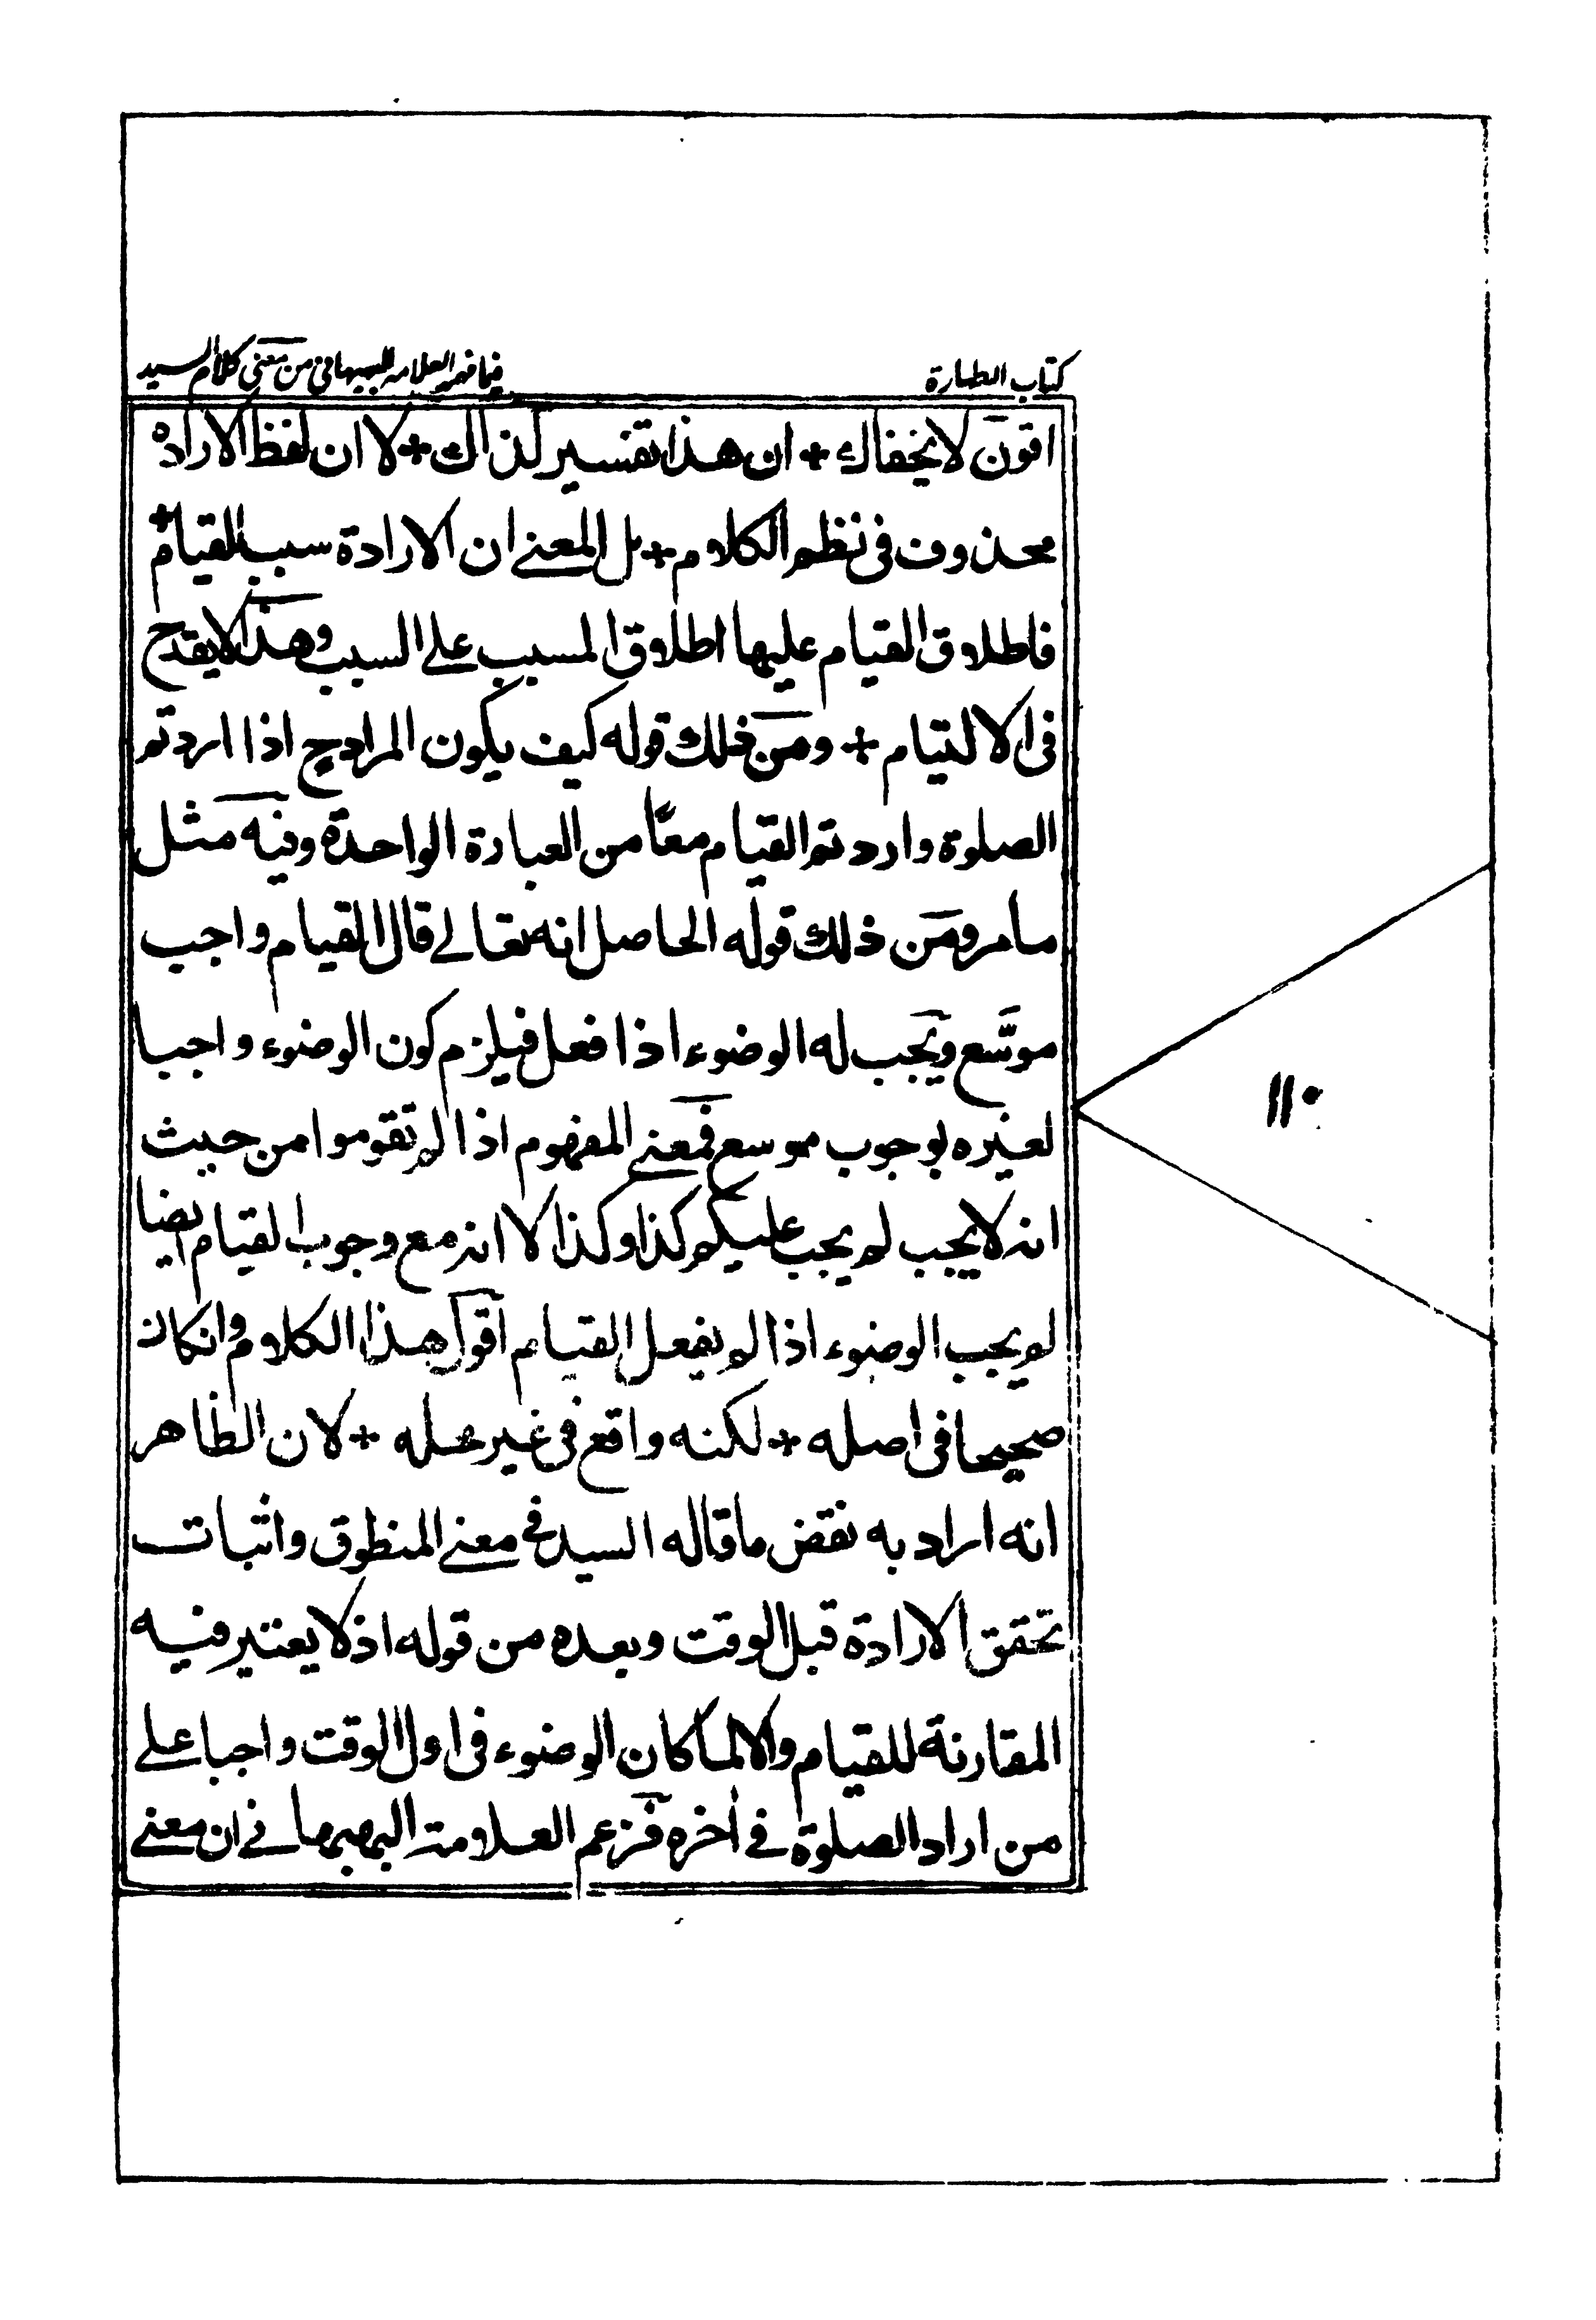 كتاب الطهارة
فيما فهمه العلامه البهبهاني من معنى كلام السيد
اقول لا يخفاك + ان هذا تفسير لذاك + لا ان لفظ الارادة
محذوف فى نظم الكلام + بل المعنے ان الارادة سبب للقيام +
فاطلاق القيام عليها اطلاق المسبب علے السبب وهذا لا يقدح
فى الالتيام + ومن ذلك قوله كيف يكون المراد ح اذا اردتم
الصلوة واردتم القيام معًا من العبارة الواحدة وفيه مثل
مامر ومن ذلك قوله الحاصل انه تعالے قال القيام واجب
موسّع ويجب له الوضوء اذا فعل فيلزم كون الوضوء واجبا
لغيره بوجوب موسع فمعنے المفهوم اذا لم تقوموا من حيث
انه لا يجب لم يجب عليكم كذا وكذا الا انه مع وجوب القيام ايضا
لم يجب الوضوء اذا لم يفعل القيام اقول هذا الكلام وانكان
صحيحا فى اصله + لكنه واقع فى غير محله + لان الظاهر
انه اراد به نقض ما قاله السيد فے معنے المنطوق واثبات
تحقق الارادة قبل الوقت وبعده من قوله اذ لا يعتبر فيه
المقارنة للقيام والا لما كان الوضوء فى اول الوقت واجبا علے
من اراد الصلوة فے اخره فزعم العلامة البهبهانے ان معنے
١١٠